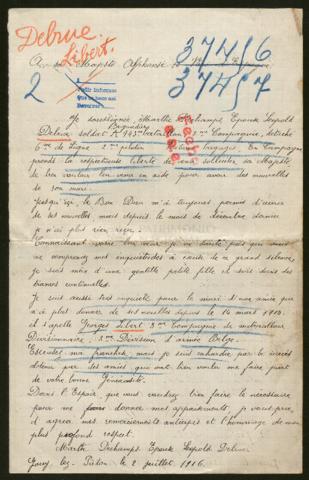 Delrue
Libert.
A sa Majesté Alphonse
37456
37457
2
Je soussignée Marthe Dechamps Epouse Léopold
Delrue soldat
6me de Ligne 2me peloton bagages en Campagne
prends la respectueuse liberté de venir solliciter sa Majesté
de bien vouloir leur venir en aide pour avoir des nouvelles
de son mari.
Jusqu'ici, le Bon Dieu m'a toujours permis d'avoir
de ses nouvelles mais depuis le mois de décembre dernier
je n'ai plus rien reçu.
Connaissant votre bon cœur je ne doute pas que vous
ne compreniez mes inquiétudes à cause de ce grand silence,
je suis mère d'une gentille petite fille et suis dans des
transes continuelles.
Je suis aussi très inquiète pour le mari d'une amie qui
n'a plus donner de ses nouvelles depuis le 14 mars 1915.
et s'appelle Georges Libert 3me Compagnie de
Divisionnaire 3me Division d'armée Belge.
Excusez ma franchise, mais je suis enhardie par le succès
obtenu par des amies qui ont bien voulu me faire part
de votre bonne Générosité.
Dans l'Espoir, que vous voudrez bien faire le nécessaire
pour me donner mes apaisements, je vous prie,
d'agréer mes remerciements anticipés et l'hommage de mon
plus profond respect.
Marthe Dechamps Epouse Léopold Delrue
Gouy lez Piéton le 2 juillet 1916.